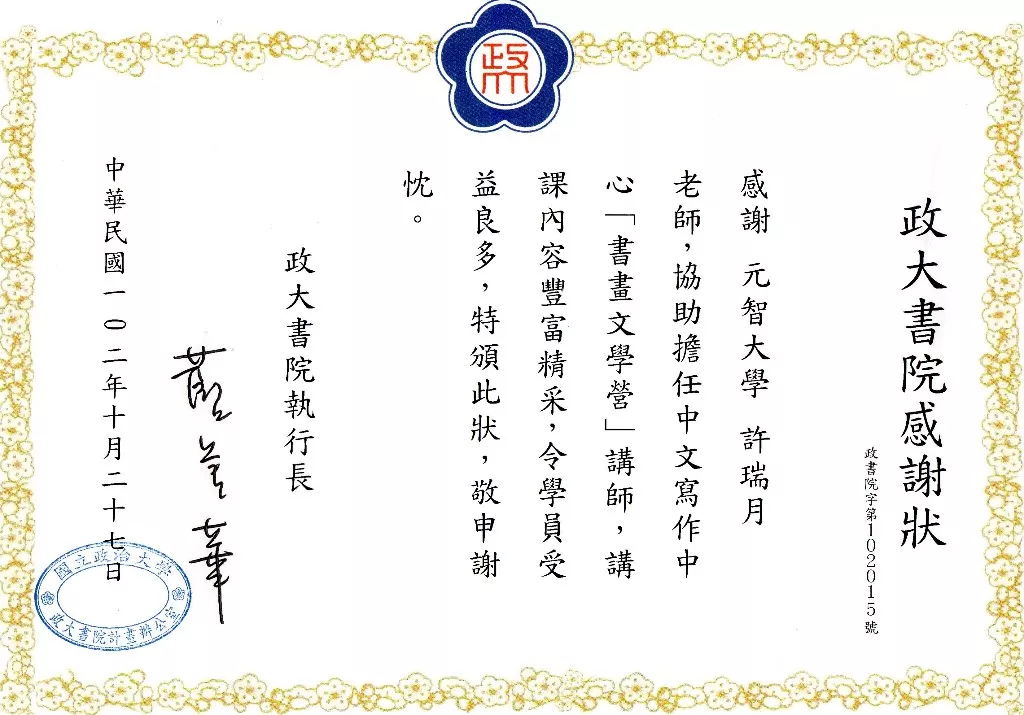 政
大
政大書院感謝狀
政書院字第102015號
感謝 元智大學 許瑞月
老師，協助擔任中文寫作中
心「書畫文學營」講師，講
課內容豐富精采，令學員受
益良多，特頒此狀，敬申謝
忱。
政大書院執行長
中華民國一〇二年十月二十七日
國立政治大學
政大書院計畫辦公室